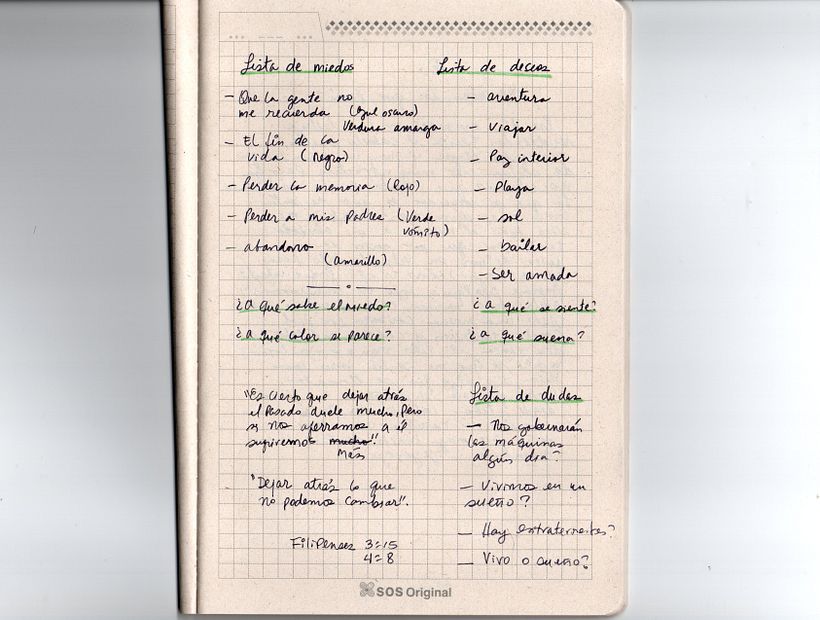 Lista de miedos
- Que la gente no
me recuerda (Azul oscuro)
Verdura amarga
- El fin de la
vida (Negro)
- Perder la memoria (Rojo)
- Perder a mis padres (Verde
vómito)
- abandono
(amarillo)
¿A qué sabe el miedo?
¿a qué color se parece?
"Es cierto que dejar atrás
el pasado duele mucho, pero
si nos aferramos a él
sufriremos mucho"
Más
"Dejar atrás lo que
no podemos cambiar".
Filipenses 3=15
4=8
Lista de deceos
- aventura
- Viajar
- Paz interior
- Playa
- sol
- bailar
- Ser amada
¿a qué se siente?
¿a qué suena?
Lista de dudas
- Nos gobernarán
las máquinas
algún día?
- Vivimos en un
sueño?
- Hay extraterrestres?
- Vivo o sueño?
SOS Original